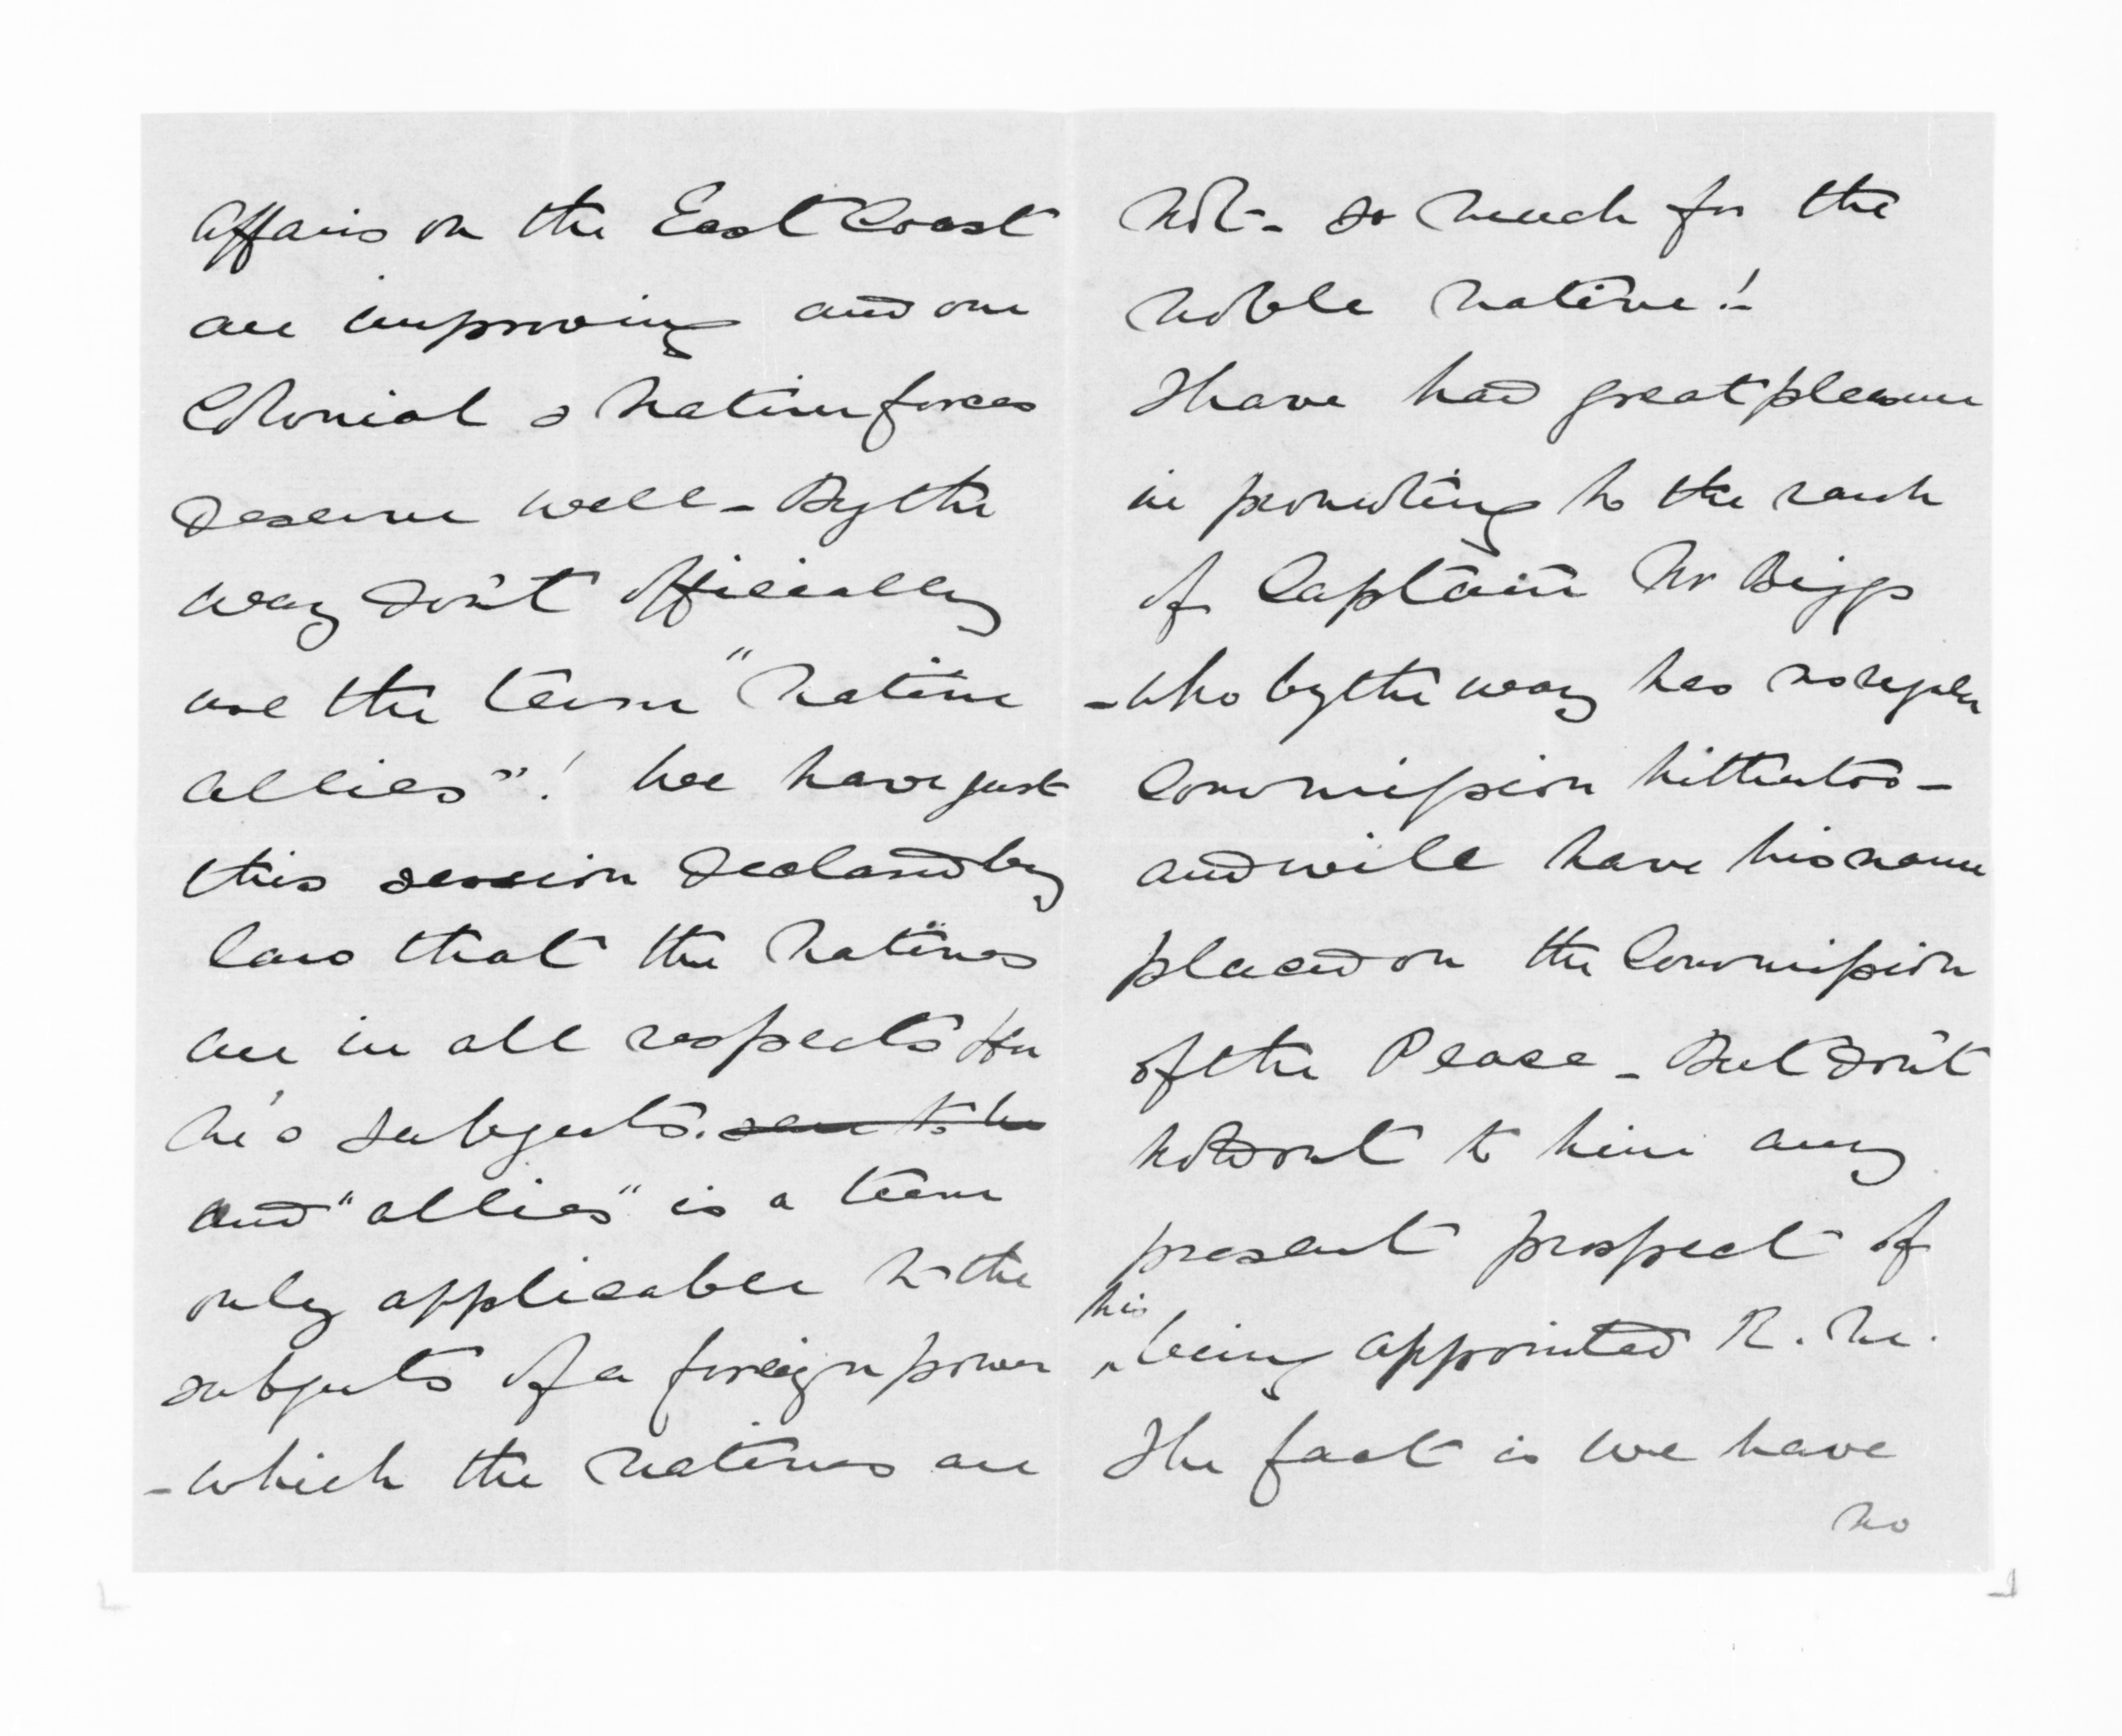 Affairs on the East Coast
are improving and our
Colonial & Native forces
deserve well - By the
way don't officially
use the term "Native
Allies"! We have just
this session declared by
law that the Natives
are in all respects Her
M's subjects.
and "allies" is a term
only applicable to the
subjects of a foreign power
- which the Natives are
not - so much for the
noble Native! -
I have had great pleasure
in promoting to the rank
of Captain Mr Biggs
- who by the way has no regular
Commission hitherto -
and will have his name
placed on the Commission
of the Peace - But don't
hold out to him any
present prospect of
his
being appointed R. M.
The fact is we have
no